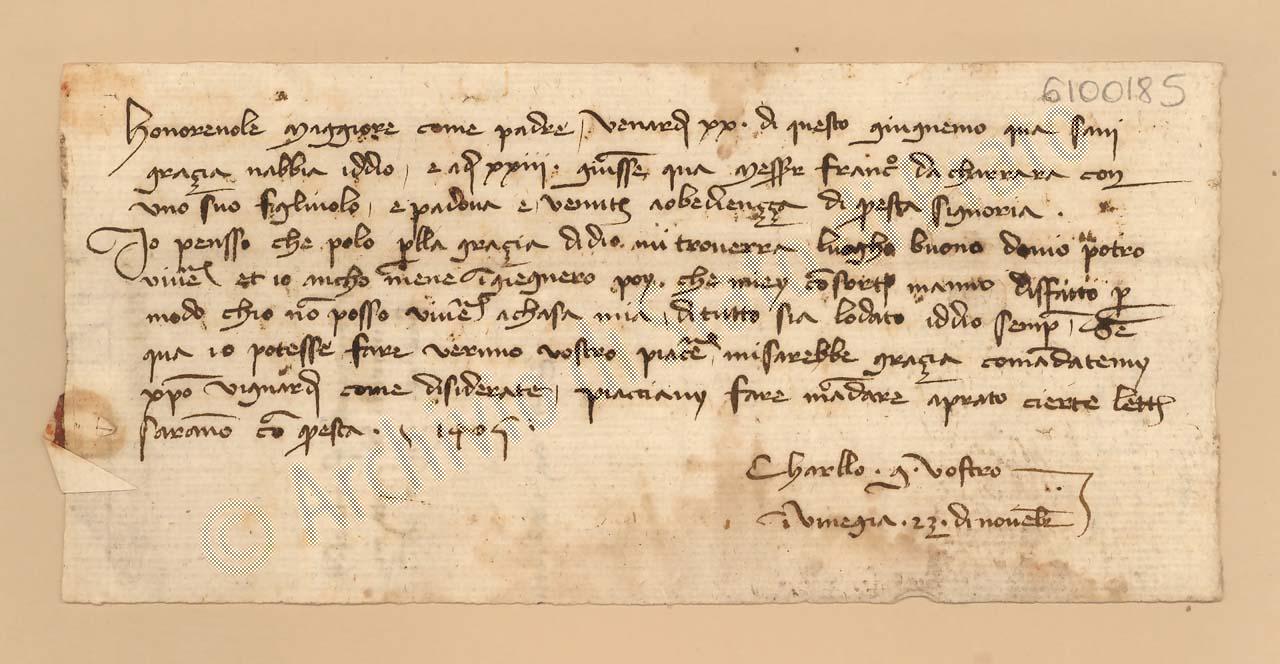 6100185
Honorevole Maggiore come padre, Venardi xx. di questo giugnemo qua sani
grazia nabbia iddio, e adi xxiii. giunsse qua Messer Franco da charrara con
uno suo figliuolo, e padova e venuta aobediençça di questa Signoria.
Io pensso che polo p lla grazia didio mi troverra luogho buono dovio potro
vivere et io ancho mene poy. che miey consorti manno disffatto p
modo chio non posso vivere achasa mia, di tutto sia lodato iddio semp, Se
qua io potesse fare veruno vostro piacere, misarebbe grazia comandatemy
xpo viguardi come disiderate, piacciavy fare mandare aprato cierte lettere
saranno con questa.
Charllo. vostro
i Vinegia. 23. di novenbre
© Archivio di Stato di Prato